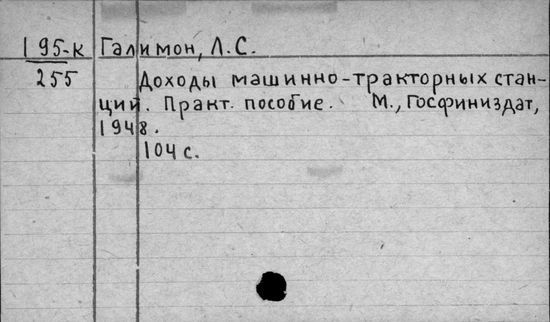 195-к Галимон, Л.С.
255 Доходы машинно-тракторных стан-
ций. Практ. пособие. М., Госфиниздат,
1948.
104 с.